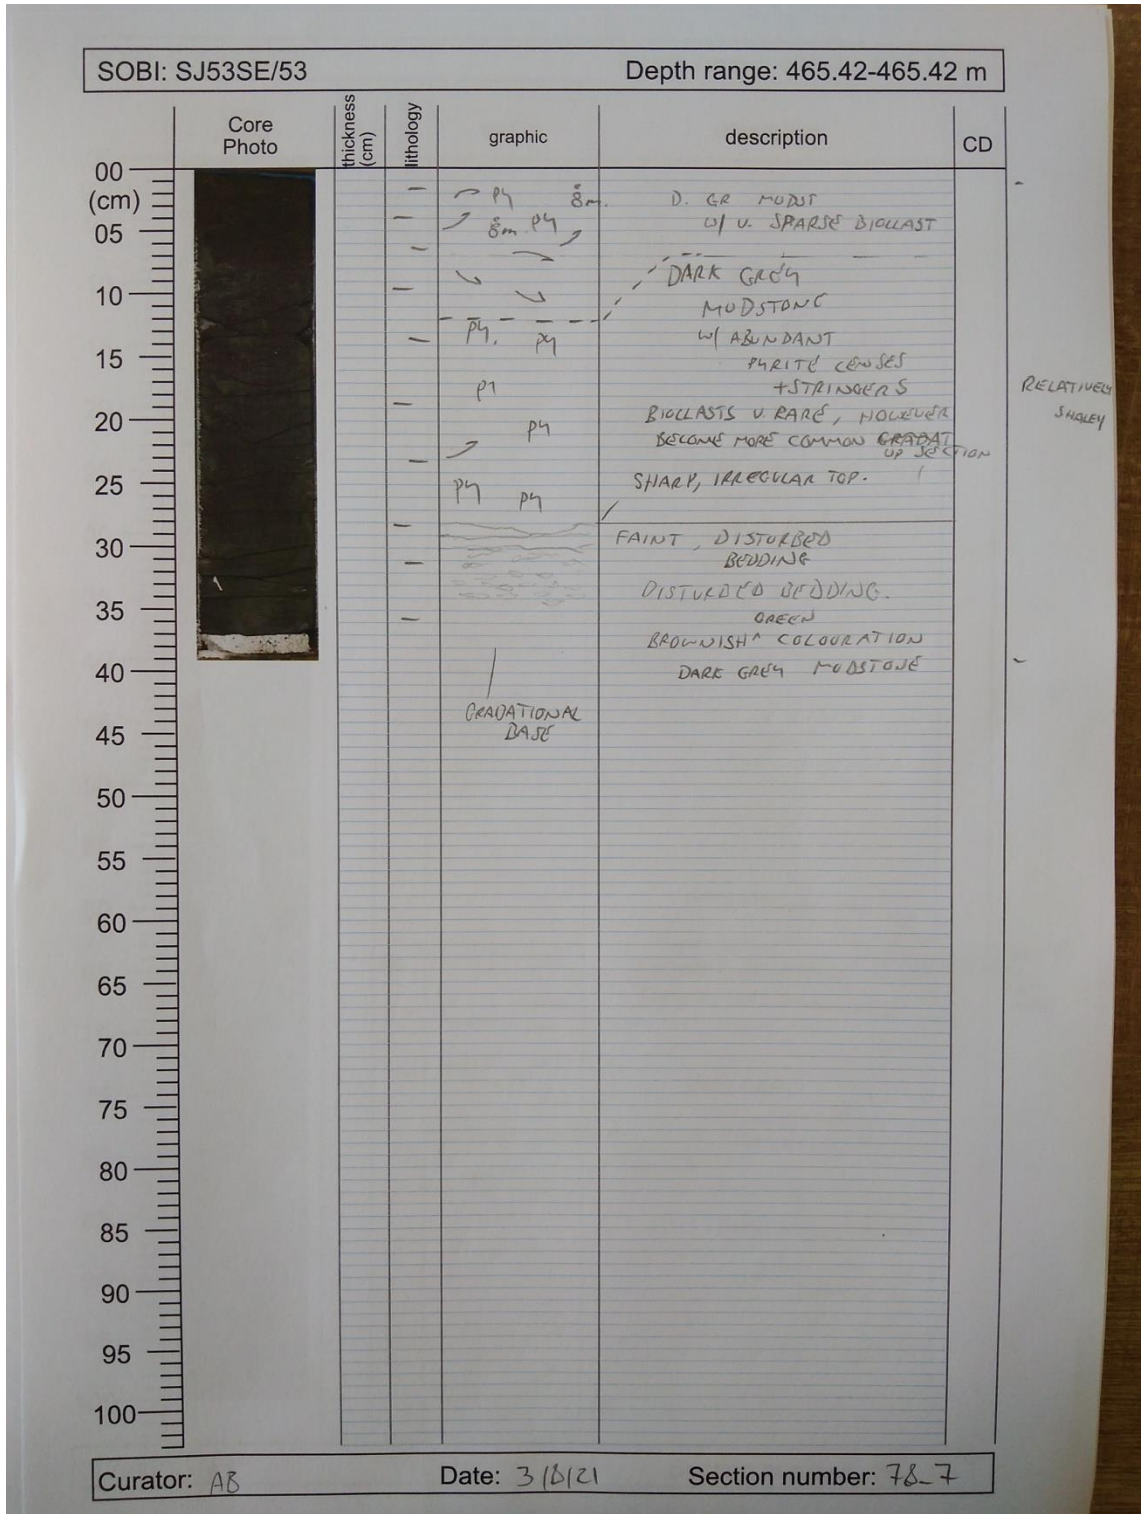 SOBI: SJ53SE/53 Depth range: 465.42-465.42 m
Core Photo thickness (cm) lithology graphic description CD
00
(cm)
05
10
15
20
25
30
35
40
45
50
55
60
65
70
75
80
85
90
95
100
py
py
py.
py
py
py
py
py
GRADATIONAL
BASE
D. GR MUDST
w/ V. SPARSE BIOCLAST
DARK GREY
MUDSTONE
w/ ABUNDANT
PYRITE LENSES
+STRINGERS
BIOCLASTS V. RARE, HOWEVER
BECOME MORE COMMON GRADAT
UP SECTION
SHARP, IRREGULAR TOP.
FAINT, DISTURBED
BEDDING
DISTURBED BEDDING.
GREEN
BROWNISH^ COLOURATION
DARK GREY MUDSTONE
RELATIVELY
SHALEY
Curator: AB Date: 3/8/21 Section number: 78_7